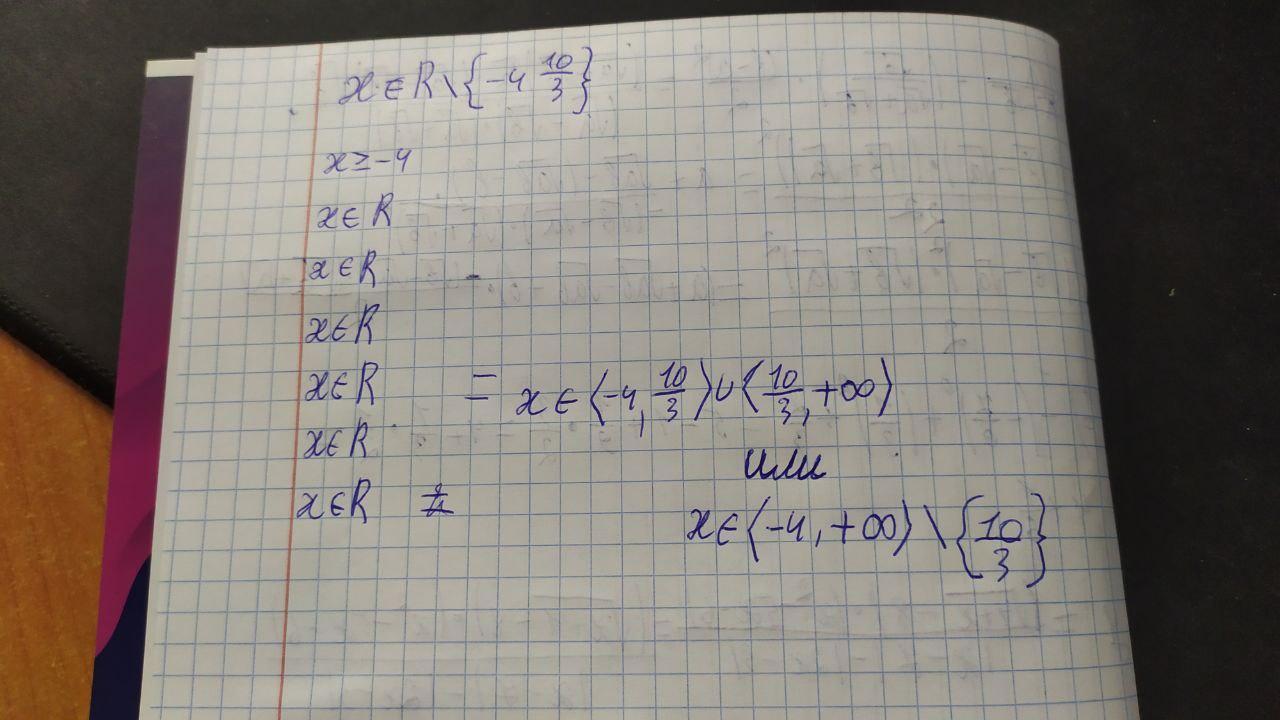 x ∈ R \ {-4 10/3}
x ≥ -4
x ∈ R
x ∈ R
x ∈ R
x ∈ R = x ∈ ⟨-4, 10/3⟩ ∪ ⟨10/3, +∞⟩
x ∈ R
или
x ∈ R
x ∈ ⟨-4, +∞⟩ \ {10/3}